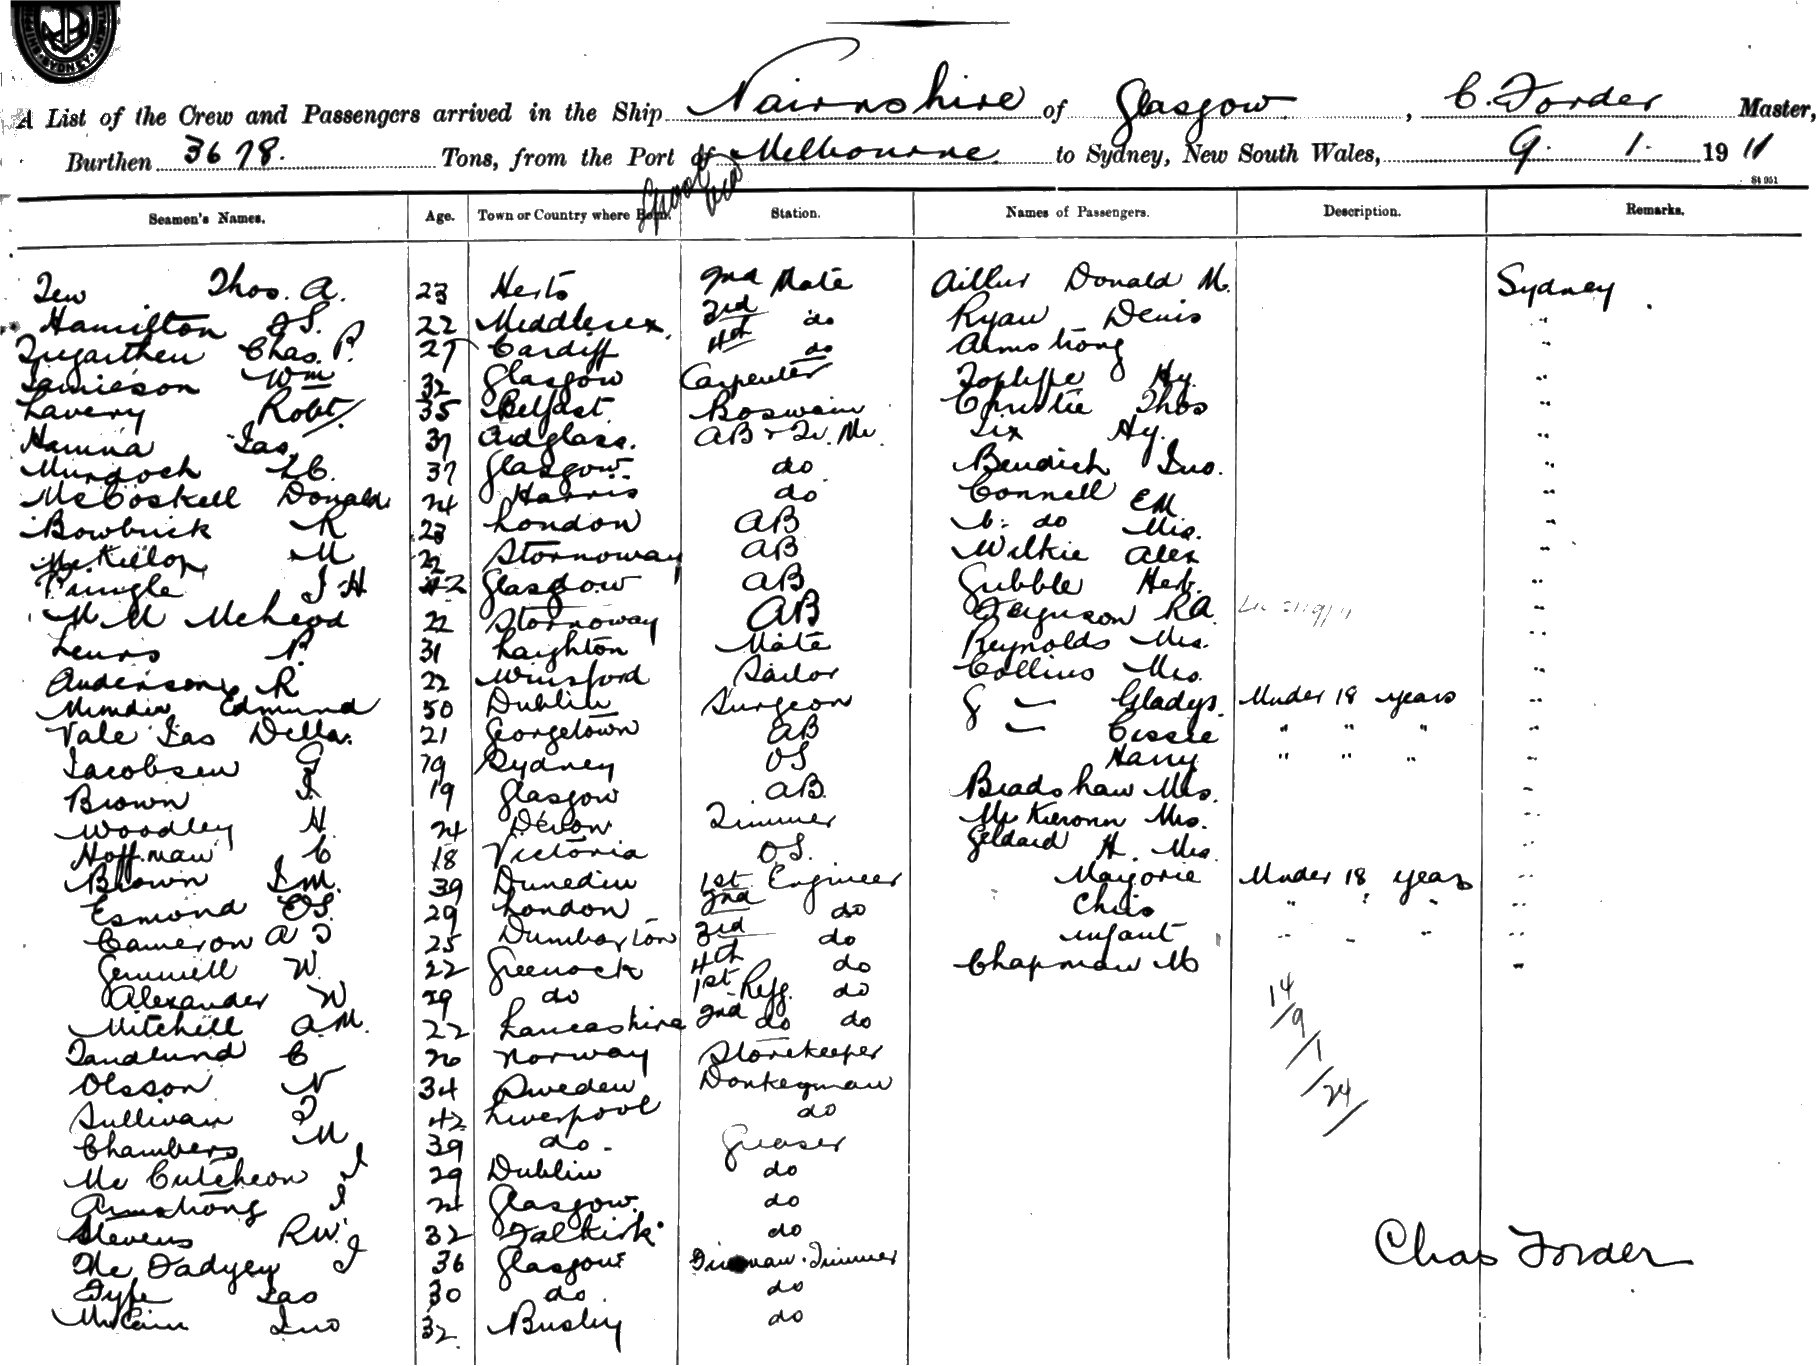 SYDNEY
A List of the Crew and Passengers arrived in the Ship Nairnshire of Glasgow, C. Forder Master,
Burthen 3678. Tons, from the Port of Melbourne to Sydney, New South Wales, 9. 1. 1911
St 951
Seamen's Names. Age. Town or Country where Born. Station. Names of Passengers. Description. Remarks.
Tew Thos. A. 23 Herts 2nd Mate Donald M. Sydney.
Hamilton J S. 22 Middlesex. 3rd do Ryan Denis "
Tregarthen Chas. P. 27 Cardiff 4th do Armstrong "
Jamieson Wm 32 Glasgow Carpenter Topliffe Hy. "
Lavery Robt. 35 Belfast Boswain Christie Thos "
Hanna Jas. 37 Ardglass. AB & Hy. "
Murdoch 37 Glasgow. do Jno. "
McCoskell Donald. 24 Harris do Connell EM "
Bowbrick R 23 London AB do Mrs. "
McKillop M 22 Stornoway AB Wilkie Alex "
Pringle J H 42 Glasgow AB Gubble Herb. "
M M McLeod 22 Stornoway AB Ferguson RA. "
Lewis P. 31 Laighton Mate Reynolds Mrs. "
Anderson R 22 Winsford Sailor Collins Mrs. "
Edmund 50 Dublin Surgeon — Gladys. Under 18 years "
Vale Jas Della. 21 Georgetown AB — Cissie " " " "
Jacobsen G 19 Sydney OS Harry " " " "
Brown J. 19 Glasgow AB. Bradshaw Mrs. "
Woodley H. 24 Devon Trimmer McKieronn Mrs. "
Hoffman C 18 Victoria OS. Geldard H. Mrs. "
Brown J M. 39 Dunedin 1st Engineer Marjorie Under 18 years "
Esmond OS. 29 London 2nd do Chris " " " "
Cameron A J 25 Dumbarton 3rd do infant " " " "
Gemmell W. 22 Greenock 4th do Chapman M "
Alexander W 29 do 1st Refg. do
Mitchell A.M. 22 Lancashire 2nd do do 14/9/1/24
Tandlund C 26 Norway Storekeeper
Olsson N 34 Sweden Donkeyman
Sullivan J 42 Liverpool do
Chambers M 39 do. Greaser
McCutcheon J 29 Dublin do
Armstrong J 24 Glasgow. do
Stevens RW. 32 Falkirk. do
McFadyen J 36 Glasgow Fireman. Trimmer Chas Forder
Fyfe Jas 30 do. do
McCain Jno 32. Busby do